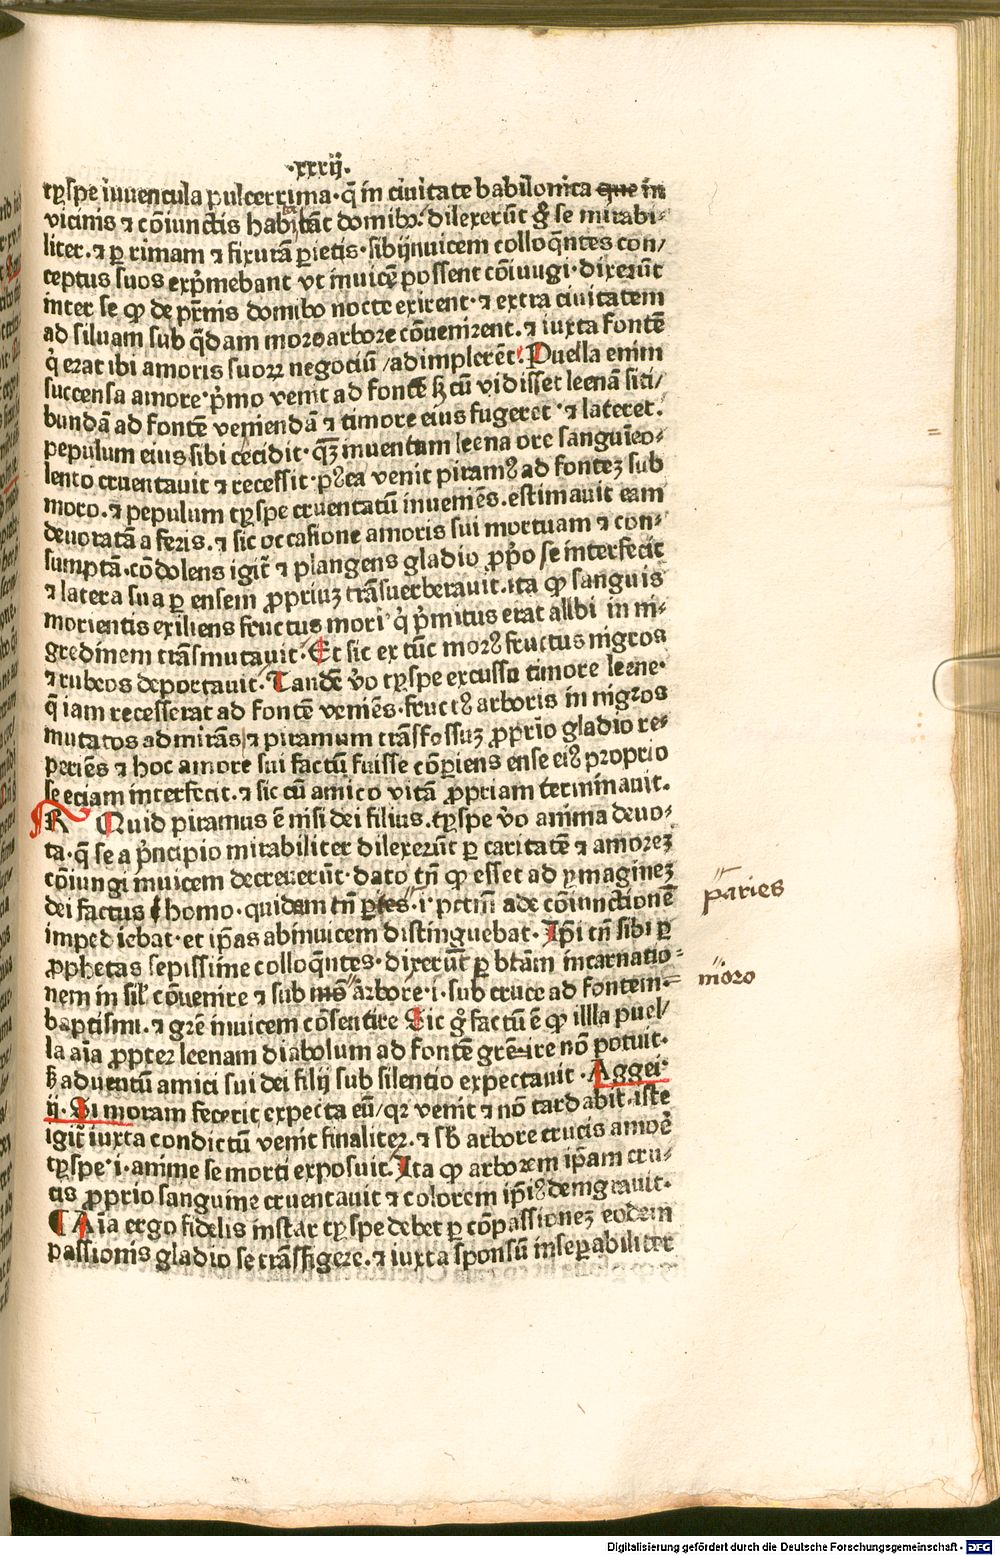 ·xxxij·
tẏspe iuuencula pulcerrima·q̄ in ciuitate babilonica que in
vicinis ⁊ cōiunctis habitāt domibꝰ. dilexerūt gͦ se mirabi⸗
liter.⁊ ꝑ rimam ⁊ fixurā ꝑietis·sibijnuicem colloq̄ntes con/
ceptus suos exp̄mebant vt inuicē possent cōiungi·dixerūt
inter se ꝙ de pr̄nis domibꝰ nocte exirent·⁊ extra ciuitatem
ad siluam sub q̄dam moro arbore cōuenirent.⁊ iuxta fontē
q̇ erat ibi amoris suoꝝ negociū/adimplerēt. Puella enim
succensa amore·p̄mo venit ad fontē sꝫ cū vidisset leenā siti/
bundā ad fontē veniendā ⁊ timore eius fugeret·⁊ lateret.
pepulum eius sibi cecidit·qꝫ inuentum leena ore sanguīeo⸗
lento cruentauit ⁊ recessit·pꝰea venit piramꝰ ad fontez sub
moro.⁊ pepulum tẏspe cruentatū inueniēs.estimauit eam
deuoratā a feris.⁊ sic occasione amoris sui mortuam ⁊ con⸗
sumptā·cōdolens igit̄ ⁊ plangens gladio ꝓp̄o se interfecit
⁊ latera sua ꝑ ensem ꝓpriuꝫ trāsuerberauit.ita ꝙ sanguis
morientis exiliens fructus mori q̇ p̄mitus erat albi in ni⸗
gredinem trāsmutauit·Et sic ex tūc morꝰ fructus nigros
⁊ rubeos deportauit·Tandē v̊o tẏspe excusso timore leene·
q̄ iam recesserat ad fontē veniēs·fructꝰ arboris in nigros
mutatos admirās/⁊ piramum trāsfossuꝫ ꝓprio gladio re⸗
periēs ⁊ hoc amore sui factū fuisse cōꝑiens ense eiꝰ proprio
se eciam interfecit.⁊ sic cū amico vitā ꝓpriam terminauit.
R Quid piramus ē nisi dei filius.tẏspe v̊o anima deuo⸗
ta·q̄ se a p̄ncipio mirabiliter dilexerūt ꝑ caritatē ⁊ amoreꝫ
cōiungi inuicem decreuerūt·dato tn̄ ꝙ esset ad ymagineꝫ
dei factus homo·quidam tn̄ ꝑies·i·pctm̄ ade cōiunctionē
impediebat·et ip̄as abinuicem distinguebat·Ip̄i tn̄ sibi ꝑ
ꝓphetas sepissime colloq̄ntes·dixerūt ꝑ btām incarnatio⸗
nem in sil̄ cōuenire ⁊ sub mo arbore·i·sub cruce ad fontem⸗
baptismi.⁊ grē inuicem cōsentire Sic gͦ factū ē ꝙ illla puel/
la aīa ꝓpter leenam diabolum ad fontē grē ire nō potuit·
sꝫ aduentū amici sui dei filij sub silentio expectauit·Aggei
ij·Si moram fecerit expecta eū/qꝛ venit ⁊ nō tardabit·iste
igit̄ iuxta condictū venit finaliter.⁊ sb̄ arbore crucis amoē
tẏspe·i·anime se morti exposuit.Ita ꝙ arborem ip̄am cru⸗
cis ꝓprio sanguine cruentauit ⁊ colorem ip̄iꝰ denigrauit.
¶ Aīa ergo fidelis instar tẏspe debet ꝑ cōpassioneꝫ eodem
passionis gladio se trāsfigere.⁊ iuxta sponsū inseꝑabiliter
paries
moro
Digitalisierung gefördert durch die Deutsche Forschungsgemeinschaft · DFG